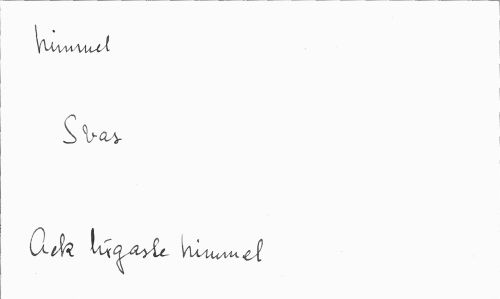 himmel
Svas
Ack högaste himmel